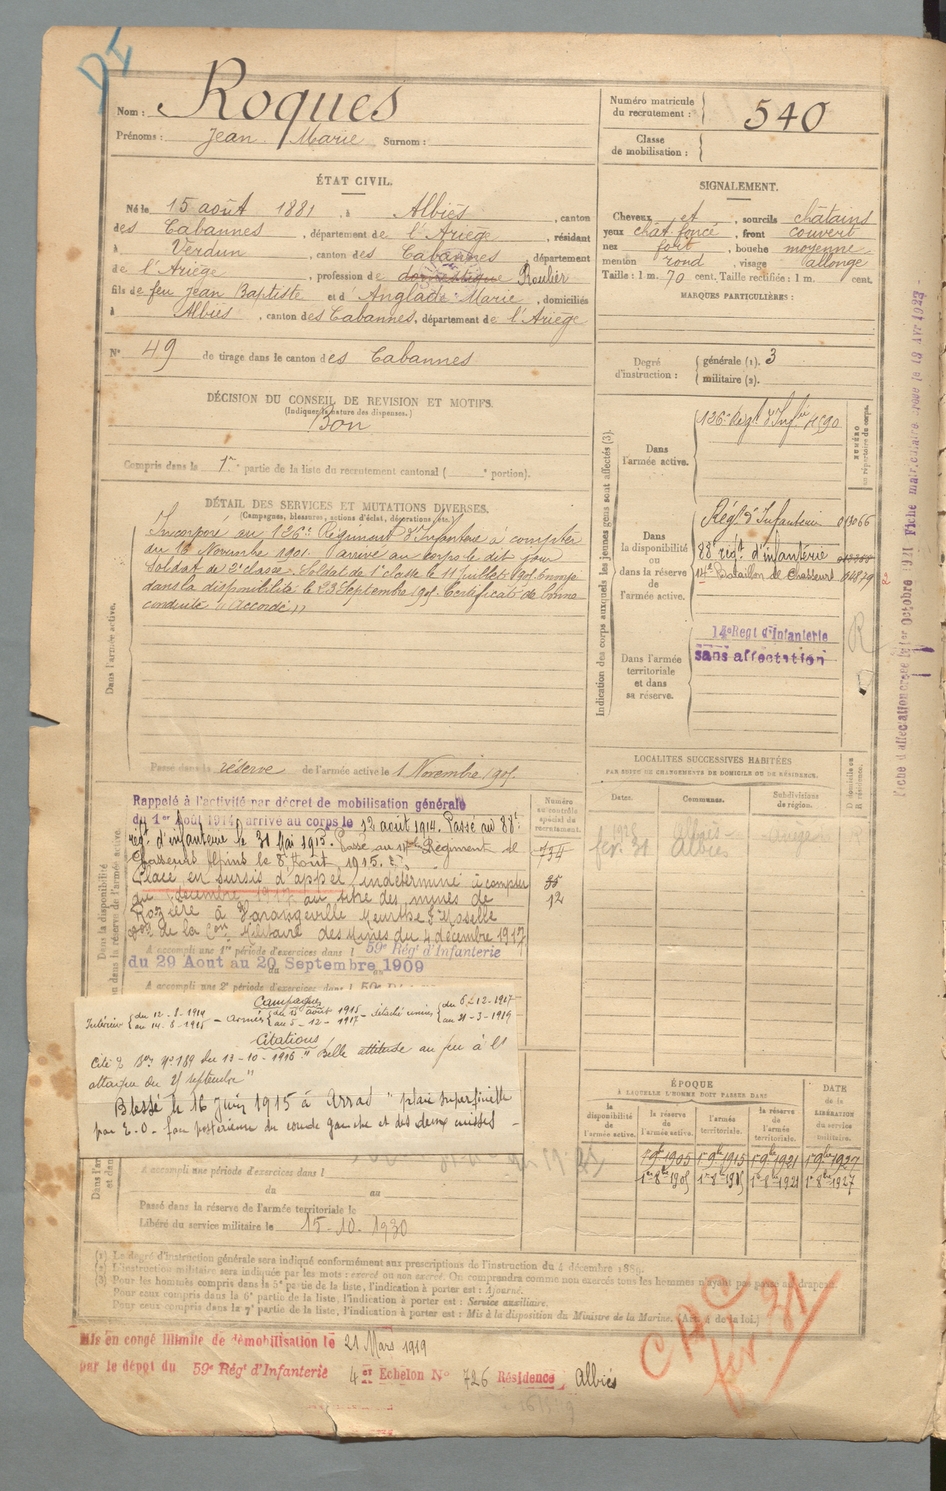 DE
Nom : Roques
Prénoms : Jean Marie Surnom :
Numéro matricule
du recrutement : 540
Classe
de mobilisation :
ÉTAT CIVIL.
Né le 15 août 1881, à Albiès, canton
des Cabannes, département de l'Ariège, résidant
à Verdun, canton des Cabannes, département
de l'Ariège, profession de domestique Roulier
fils de feu Jean Baptiste et d'Anglade Marie, domiciliés
à Albiès, canton des Cabannes, département de l'Ariège
N° 49 de tirage dans le canton des Cabannes
SIGNALEMENT.
Cheveux et, sourcils châtains
yeux chat. foncé, front couvert
nez fort, bouche moyenne
menton rond, visage allongé
Taille : 1 m. 70 cent. Taille rectifiée : 1 m. cent.
MARQUES PARTICULIÈRES :
Degré
d'instruction :
générale (1). 3
militaire (2).
DÉCISION DU CONSEIL DE REVISION ET MOTIFS.
(Indiquer la nature des dispenses.)
Bon
Compris dans la 1re partie de la liste du recrutement cantonal ( e portion).
DÉTAIL DES SERVICES ET MUTATIONS DIVERSES.
(Campagnes, blessures, actions d'éclat, décorations, etc.)
Dans l'armée active.
Incorporé au 126e Régiment d'Infanterie à compter
du 16 Novembre 1901. Arrivé au corps le dit jour
soldat de 2e classe. Soldat de 1e classe le 11 Juillet 1903. Envoyé
dans la disponibilité le 23 Septembre 1905. Certificat de bonne
conduite "Accordé"
Passé dans la réserve de l'armée active le 1 Novembre 1905
Indication des corps auxquels les jeunes gens sont affectés (3).
NUMÉRO
au répertoire du corps.
Dans
l'armée active.
126e Régt d'Infie
Dans
la disponibilité
ou
dans la réserve
de
l'armée active.
Régt d'Infanterie
88e régt d'infanterie
14e Bataillon de Chasseurs
Dans l'armée
territoriale
et dans
sa réserve.
14e Regt d'Infanterie
sans affectation
R
LOCALITÉS SUCCESSIVES HABITÉES
PAR SUITE DE CHANGEMENTS DE DOMICILE OU DE RÉSIDENCE.
Dates. Communes. Subdivisions
de région.
D domicile ou
R résidence.
Albiès Ariège
fév 31 Albiès
Dans la disponibilité
ou dans la réserve de l'armée active.
Numéro
au contrôle
spécial du
recrutement.
734
Rappelé à l'activité par décret de mobilisation générale
du 1er Août 1914, arrivé au corps le 12 août 1914. Passé au 88e
régt d'infanterie le 31 Mai 1915. Passé au Régiment de
Chasseurs le 8 Août 1915.
Placé en sursis d'appel indéterminé à compter
du décembre 1917 au titre des mines de
Rozière à Varangeville Meurthe & Moselle
de la Con Militaire des Mines du 4 décembre 1917
A accompli une 1re période d'exercices dans l 59e Régt d'Infanterie
du 29 Aout au 20 Septembre 1909
A accompli une 2e période d'exercices dans l
Campagnes
Intérieur du 12-8-1914 – Armée du 15 août 1915 – détaché mines du 6-12-1917
au 14-8-1915 au 5-12-1917 au 21-3-1919
Citations
Cité à n° 189 du 13-10-1916 "Belle attitude au feu à l'
attaque du 25 septembre"
Blessé le 16 Juin 1915 à Arras "plaie superficielle
par E.O. face postérieure du coude gauche et des deux cuisses –
A accompli une période d'exercices dans l
du au
Passé dans la réserve de l'armée territoriale le
Libéré du service militaire le 15-10-1930
ÉPOQUE
À LAQUELLE L'HOMME DOIT PASSER DANS
DATE
de la
LIBÉRATION
du
service
militaire.
la
disponibilité
de
l'armée active.
la réserve
de
l'armée active.
l'armée
territoriale.
la réserve
de
l'armée
territoriale.
1er 9bre 1905 1er 9bre 1915 1er 9bre 1921 1er 9bre 1927
1er 8bre 1905 1er 8bre 1915 1er 8bre 1921 1er 8bre 1927
(1) Le degré d'instruction générale sera indiqué conformément aux prescriptions de l'instruction du 4 décembre 1889.
(2) L'instruction militaire sera indiquée par les mots : exercé ou non exercé. On comprendra comme non exercés tous les hommes n'ayant pas passé au drapeau.
(3) Pour les hommes compris dans la 5e partie de la liste, l'indication à porter est : Ajourné.
Pour ceux compris dans la 6e partie de la liste, l'indication à porter est : Service auxiliaire.
Pour ceux compris dans la 7e partie de la liste, l'indication à porter est : Mis à la disposition du Ministre de la Marine. (Art. 4 de la loi.)
Mis en congé illimité de démobilisation le 21 Mars 1919
par le dépôt du 59e Régt d'Infanterie 4er Echelon N° 726 Résidence, Albiès
CAC
fév 31
Fiche d'affectation créée le 1er Octobre 1911 Fiche matriculaire créée le 18 Avr 1923